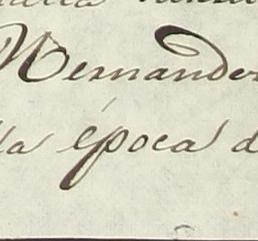 Hernandez
la época d